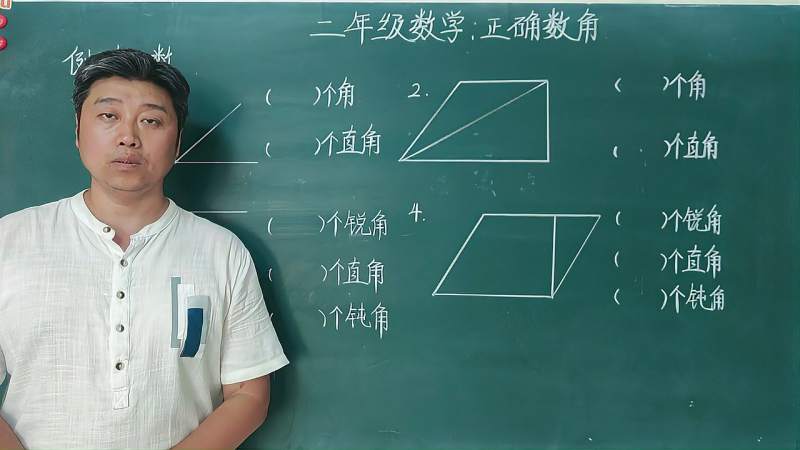 二年级数学:正确数角
例 数
( )个角
( )个直角
2.
( )个角
( )个直角
( )个锐角
( )个直角
( )个钝角
4.
( )个锐角
( )个直角
( )个钝角